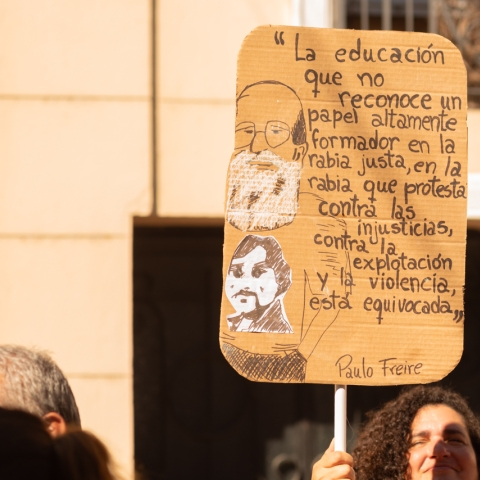 “La educación
que no
reconoce un
papel altamente
formador en la
rabia justa, en la
rabia que protesta
contra las
injusticias,
contra la
explotación
y la violencia,
está equivocada„
Paulo Freire